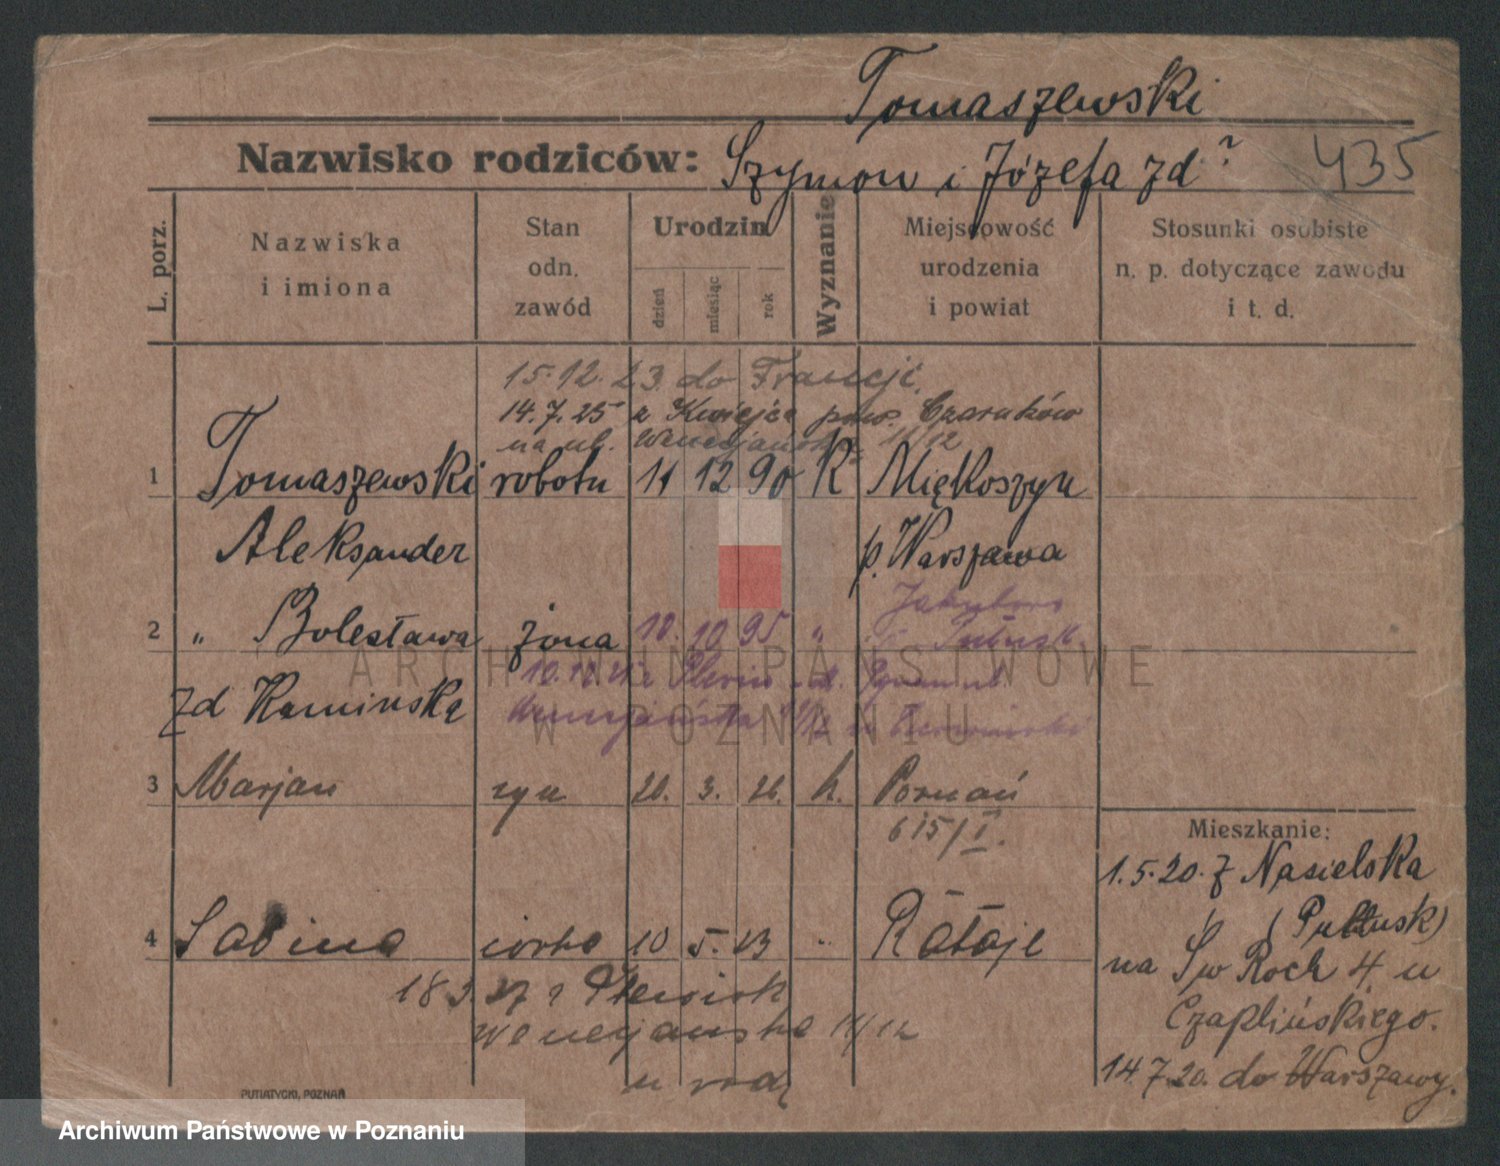 Tomaszewski
Nazwisko rodziców: Szymon i Józefa zd ?
435
L. porz.
Nazwiska
i imiona
Stan
odn.
zawód
Urodzin
dzień
miesiąc
rok
Wyznanie
Miejscowość
urodzenia
i powiat
Stosunki osobiste
n. p. dotyczące zawodu
i t. d.
15.12.23. do Francji.
14.7.25 z pow. Czarnków
na ul. Wenecjańska 11/12
1 Tomaszewski robotn 11 12 90 K Miękoszyn
Aleksander p. Warszawa
2 " Bolesława żona 10. 10 95 "
Pułtusk.
zd Kamińska
3 Marjan syn 20. 3. 26. k. Poznań
615/I.
4 Sabina córka 10 5. 23 " Rataje
Wenecjańska 11/12
u rodz
Mieszkanie:
1.5.20. z Nasielska
p (Pułtusk)
na Św Roch 4 u
Czaplińskiego.
14.7.20. do Warszawy.
PUTIATYCKI, POZNAŃ
ARCHIWUM PAŃSTWOWE
W POZNANIU
Archiwum Państwowe w Poznaniu